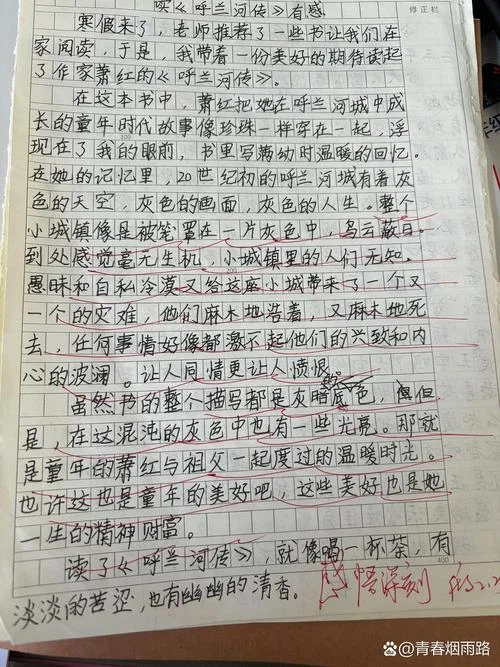 读《呼兰河传》有感
修正栏
寒假来了，老师推荐了一些书让我们在
家阅读，于是，我带着一份美好的期待读起
了作家萧红的《呼兰河传》。
在这本书中，萧红把她在呼兰河城中成
长的童年时代故事像珍珠一样穿在一起，浮
100
现在了我的眼前，书里写满幼时温暖的回忆。
在她的记忆里，20世纪初的呼兰河城有着灰
色的天空，灰色的画面，灰色的人生。整个
小城镇像是被笼罩在一片灰色中，乌云蔽日。
到处感觉毫无生机，小城镇里的人们无知。
200
愚昧和自私冷漠又给这座小城带来了一个又
一个的灾难，他们麻木地活着，又麻木地死
去，任何事情好像都激不起他们的兴致和内
心的波澜。让人同情更让人愤恨。
虽然书的整个描写都是灰暗底色，但
是，在这混沌的灰色中也有一些光亮。那就
是童年的萧红与祖父一起度过的温暖时光。
也许这也是童年的美好吧，这些美好也是她
一生的精神财富。
读了《呼兰河传》，就像喝一杯茶，有
400
淡淡的苦涩，也有幽幽的清香。
感悟深刻
@青春烟雨路